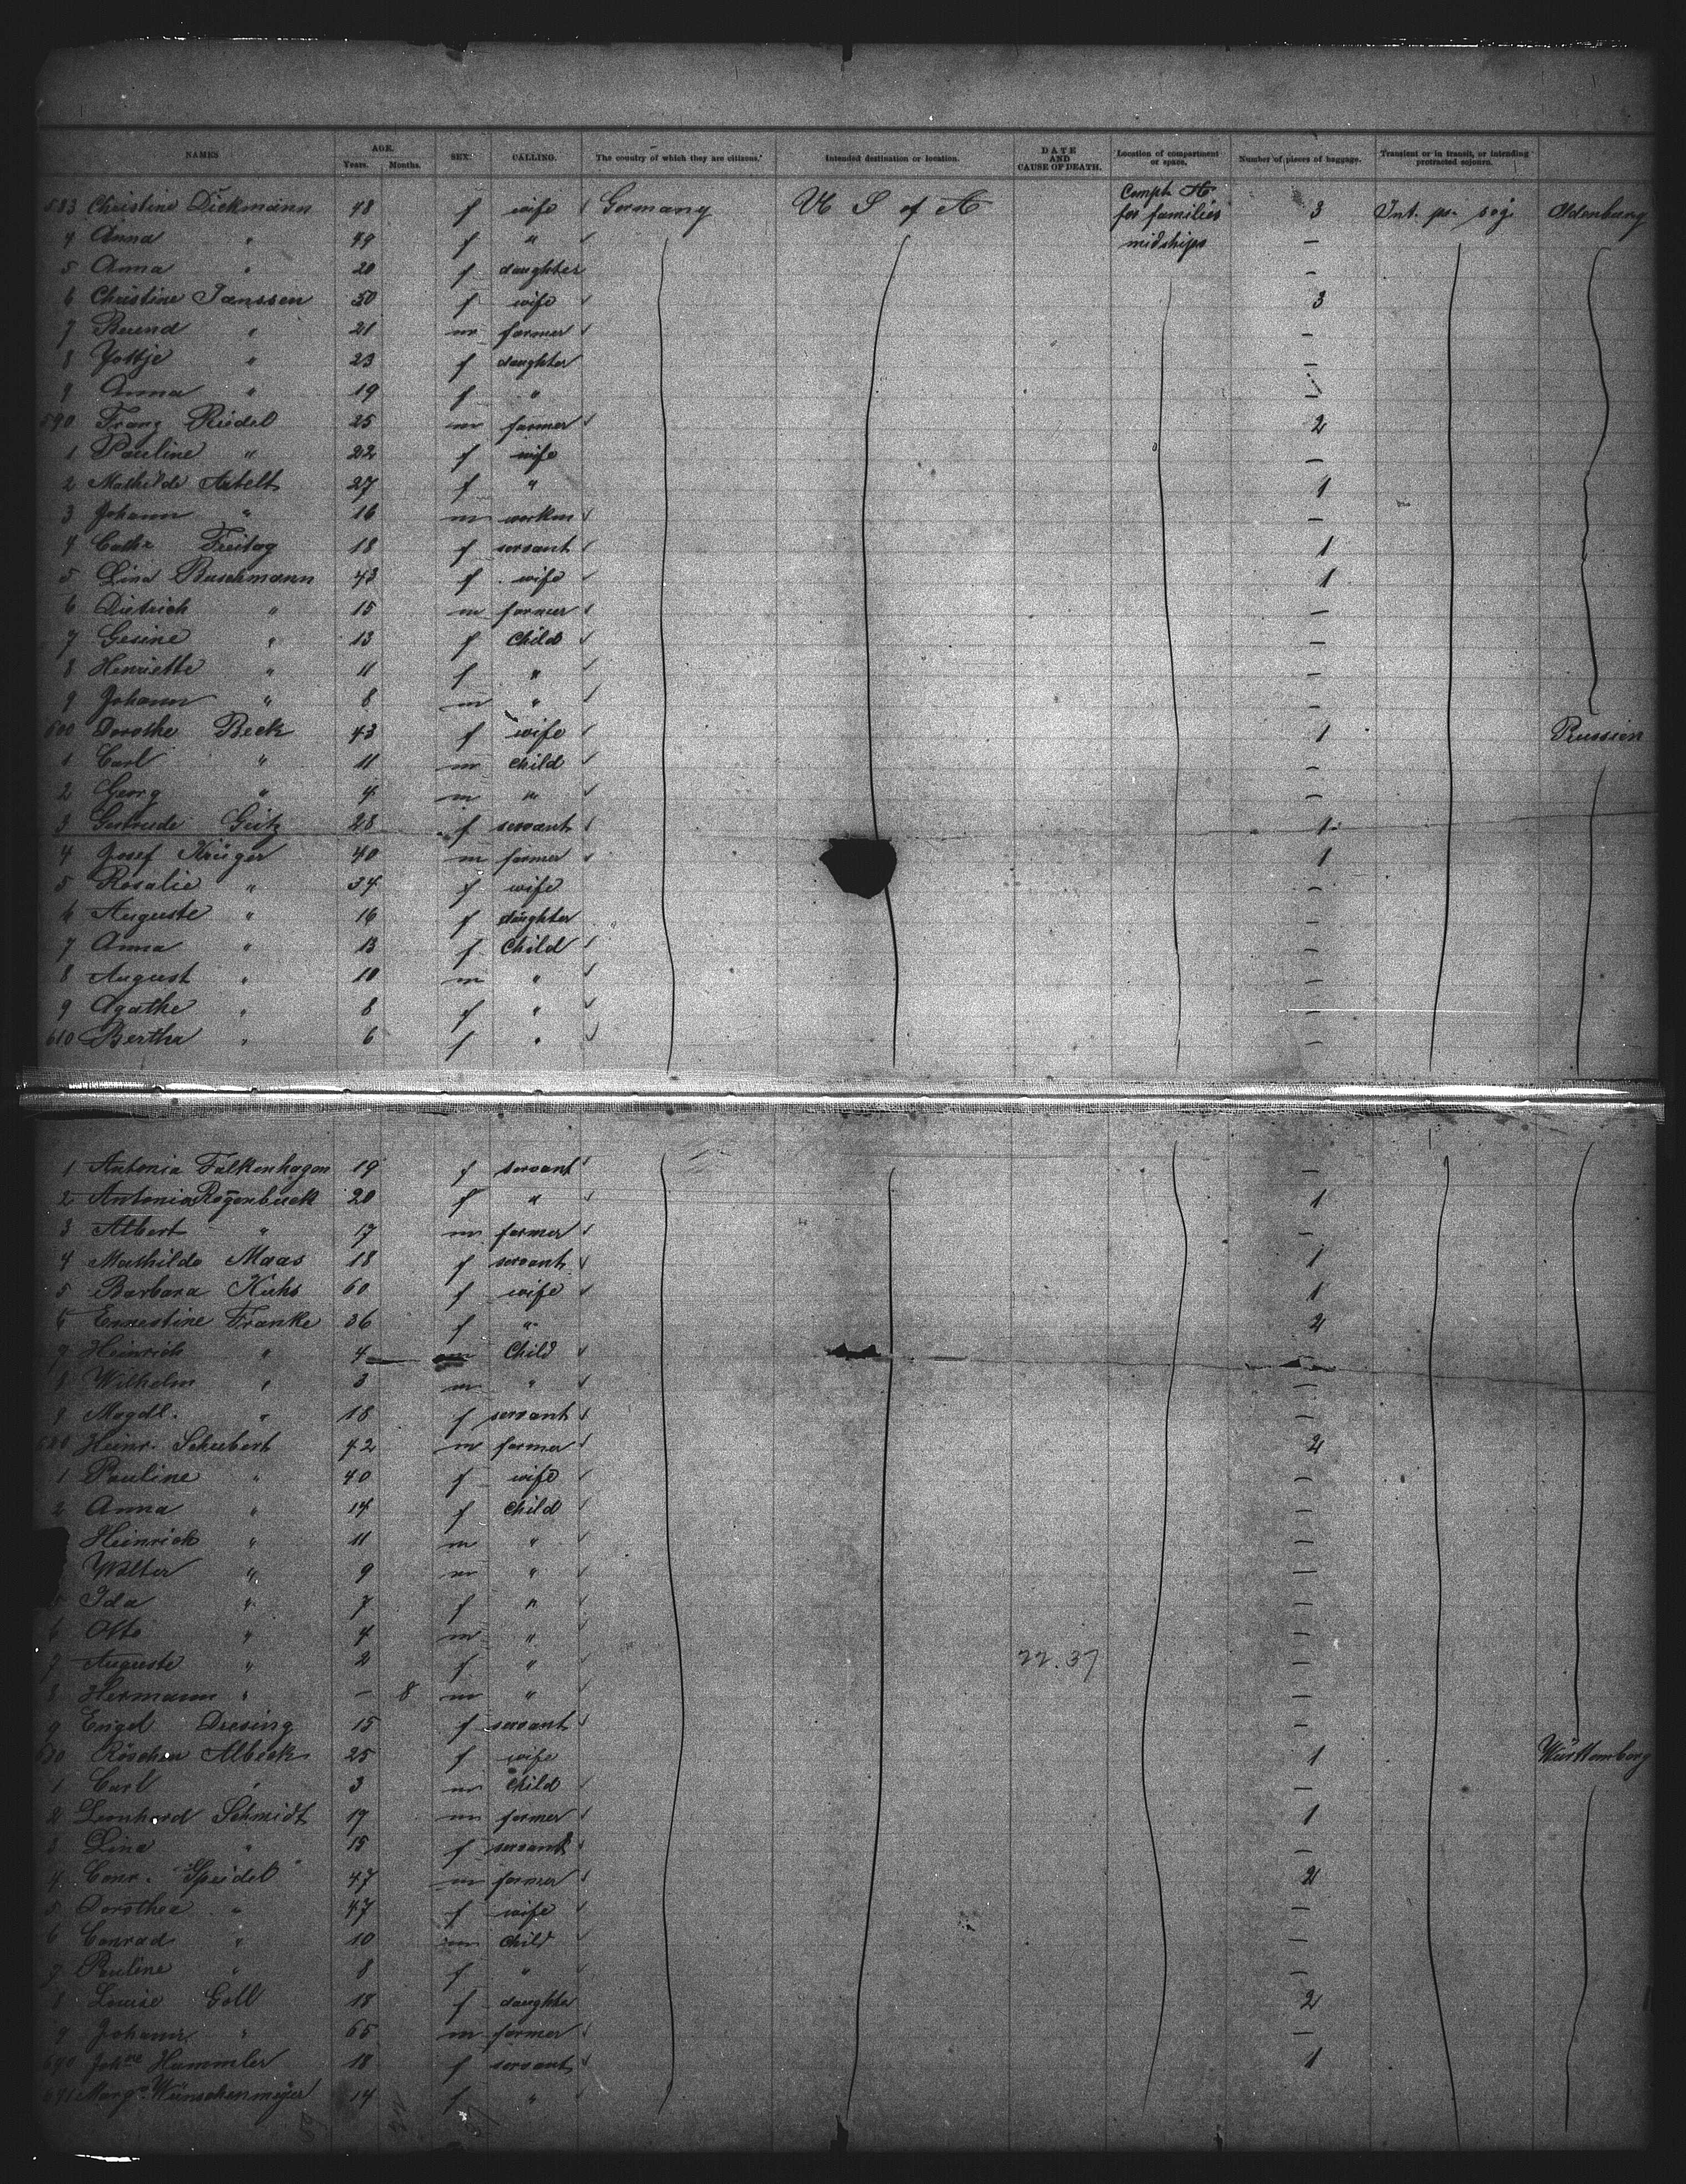 NAMES AGE. Years. Months. SEX. CALLING. The country of which they are citizens. Intended destination or location. DATE AND CAUSE OF DEATH. Location of compartment or space. Number of pieces of baggage. Transient or in transit, or intending protracted sojourn.
583 Christine Dickmann 48 f wife Germany U S of A Compt. for families midships 3 Int. pr. soj. Oldenburg
4 Anna " 49 f " –
5 Anna " 20 f daughter –
6 Christine Janssen 50 f wife 3
7 Berend " 21 m farmer –
8 " 23 f daughter –
9 Anna " 19 f " –
590 Franz Riedel 25 m farmer 2
1 Pauline " 22 f wife –
2 Mathilde 27 f " 1
3 Johann " 16 m workm –
4 Freitag 18 f servant 1
5 Lina Buschmann 43 f wife 1
6 Dietrich " 15 m farmer –
7 Gesine " 13 f child –
8 Henriette " 11 f " –
9 Johann " 8 m " –
600 Dorothe Beck 43 f wife 1 Prussien
1 Carl " 11 m child –
2 Georg " 4 m " –
3 Gertrude 28 f servant 1
4 Josef Krüger 40 m farmer 1
5 Rosalie " 34 f wife –
6 Auguste " 16 f daughter –
7 Anna " 13 f Child –
8 August " 10 m " –
9 Agathe " 8 f " –
610 Bertha " 6 f " –
1 Antonia Falkenhagen 19 f servant –
2 Antonia Rogenbuck 20 f " 1
3 Albert " 17 m farmer –
4 Mathilde Maas 18 f servant 1
5 Barbara Kuhs 60 f wife 1
6 Ernestine Franke 36 f " 2
7 Heinrich " 4 m Child –
8 Wilhelm " 3 m " –
9 Magdl. " 18 f servant –
620 Heinr. Schubert 42 m farmer 2
1 Pauline " 40 f wife –
2 Anna " 14 f child –
Heinrich " 11 m " –
Walter " 9 m " –
5 Ida " 7 f " –
6 Otto " 4 m " –
7 Auguste " 2 f " 22.37 –
8 Hermann " – 8 m " –
9 Engel Dresing 15 f servant –
630 Albeck 25 f wife 1 Württemberg
1 Carl " 3 m child –
2 Leonhard Schmidt 17 m farmer 1
3 Lina " 15 f servant –
4 Conr. Speidel 47 m farmer 2
5 Dorothea " 47 f wife –
6 Conrad " 10 m child –
7 Pauline " 8 f " –
8 Louise Goll 18 f daughter 2
9 Johann " 65 m farmer –
640 Johne Hummler 18 f servant 1
641 Margr. Wünschenmeyer 14 f "